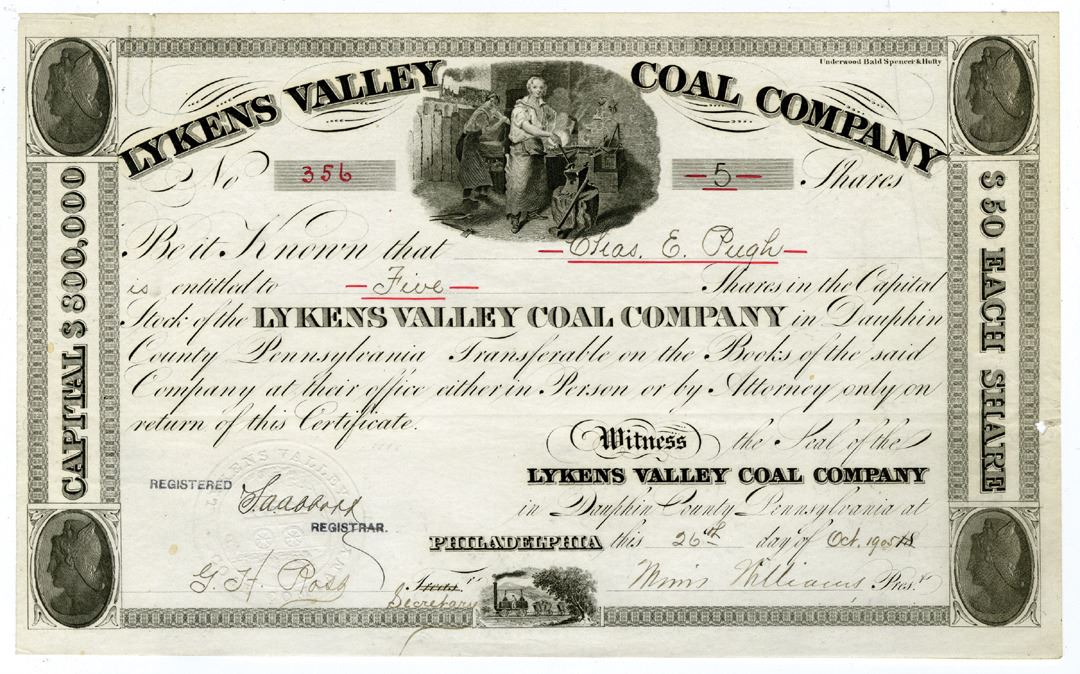 Underwood Bald Spencer & Hufty
LYKENS VALLEY COAL COMPANY
No 356 — 5 — Shares
CAPITAL $ 300,000
$ 50 EACH SHARE
Be it Known that — Chas. E. Pugh —
is entitled to — Five — Shares in the Capital
Stock of the LYKENS VALLEY COAL COMPANY in Dauphin
County Pennsylvania Transferable on the Books of the said
Company at their office either in Person or by Attorney only on
return of this Certificate.
Witness the Seal of the
LYKENS VALLEY COAL COMPANY
in Dauphin County Pennsylvania at
PHILADELPHIA this 26th day of Oct. 1905
REGISTERED
REGISTRAR.
G. H. Ross Treasr.
Secretary
Williams Prest.